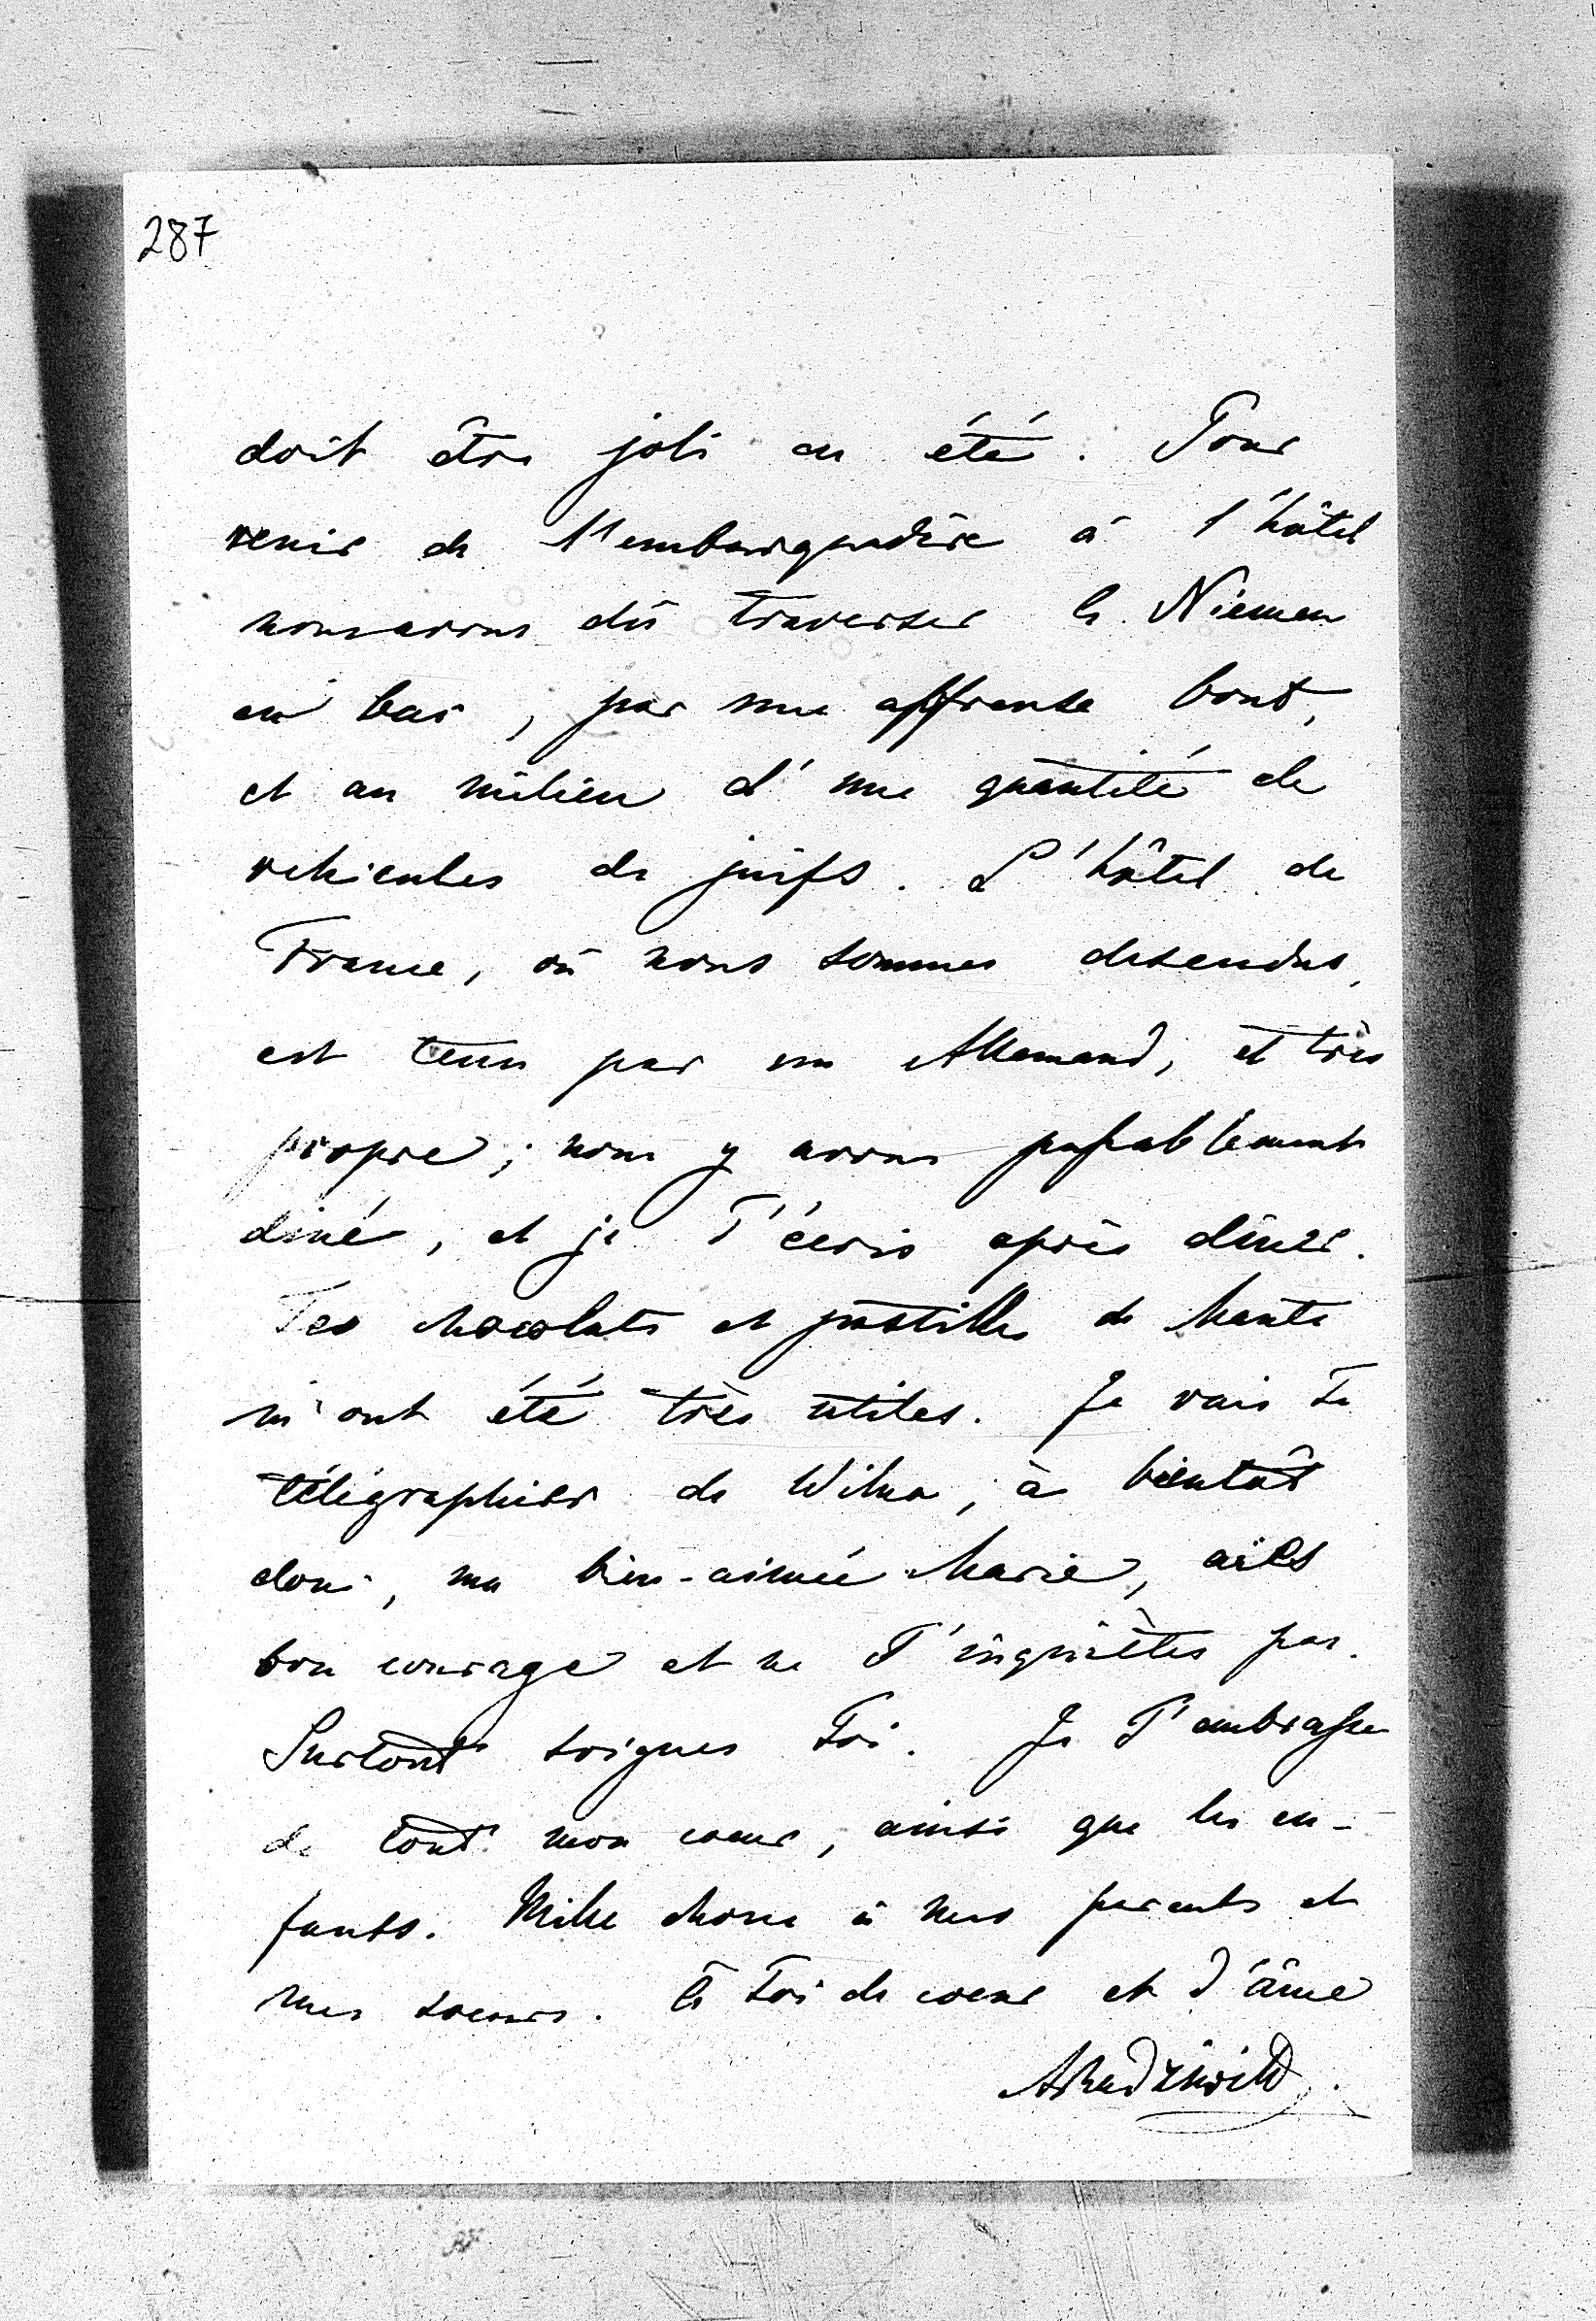 287
doit être joli en été. Pour
venir de l'embarquadère à l'hôtel
nous avons dû traverser le Niemen
en bac, par une affreuse boue,
et au milieu d'une quantité de
vehicules de juifs. L'hôtel de
France, où nous sommes descendus,
est tenu par un Allemand, et très
propre; nous y avons passablement
diné, et je T'écris après dîner.
Tes chocolats et pastilles de Mante
m'ont été très utiles. Je vais Te
télégraphier de Wilna, à bientôt
donc, ma bien-aimée Marie, aïes
bon courage et ne T'inquiètes pas.
Surtout soignes Toi. Je T'embrasse
de tout mon coeur, ainsi que les en-
fants. Mille choses à mes parents et
mes soeurs. à Toi de coeur et d'âme
ARadziwill.